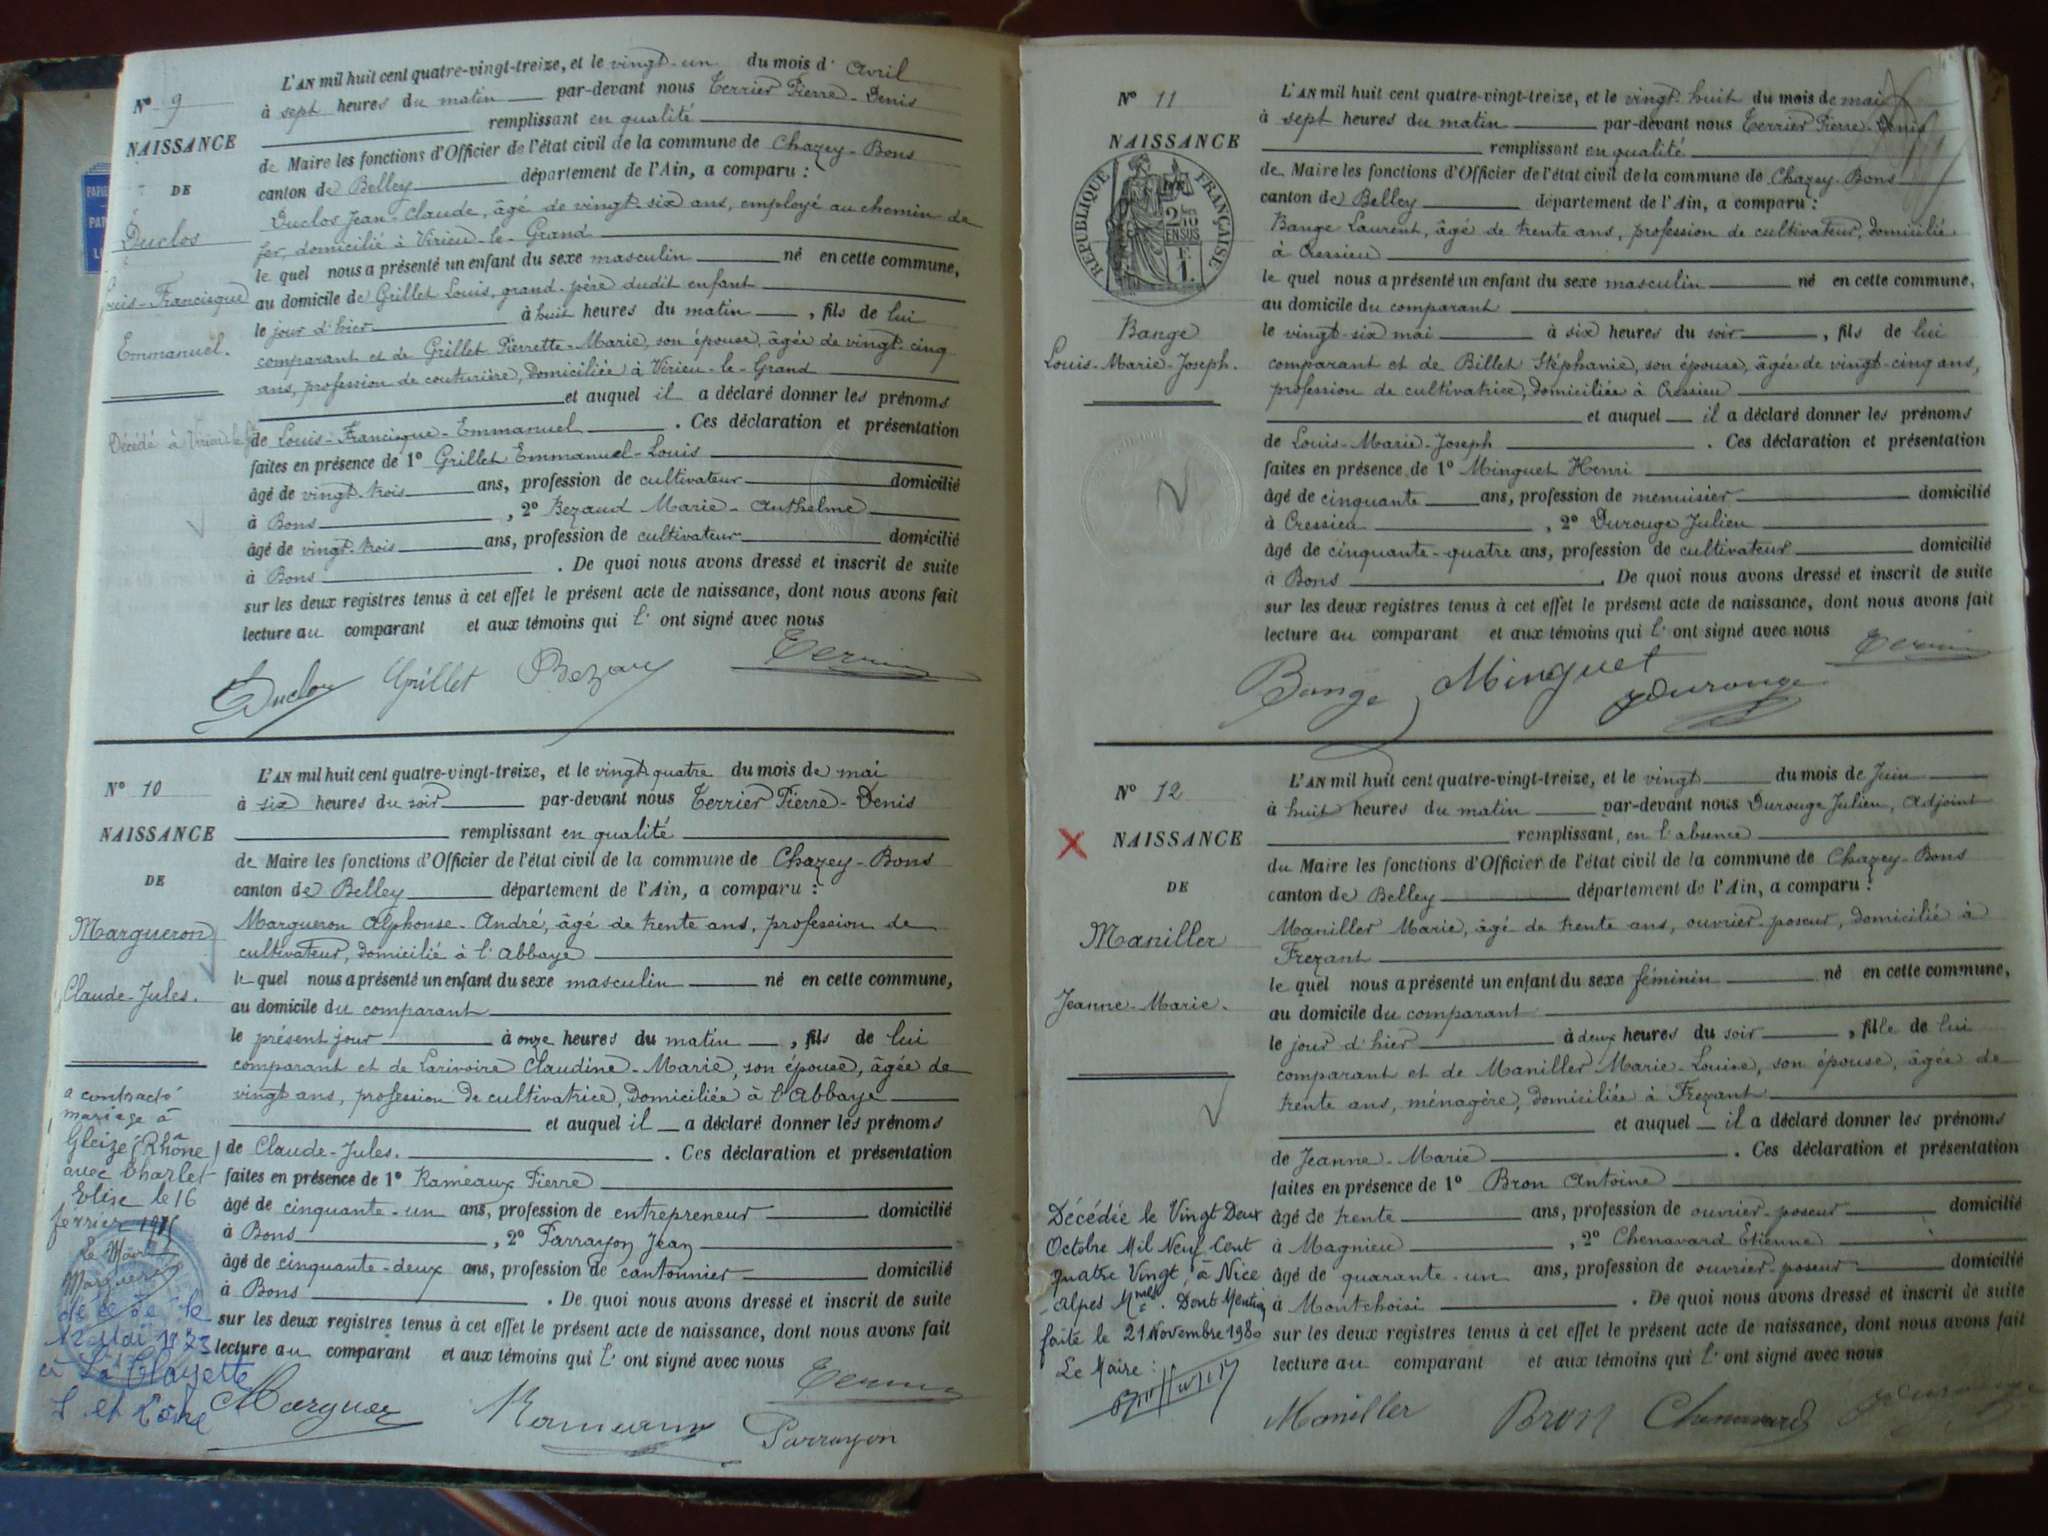 L'AN mil huit cent quatre-vingt-treize, et le vingt-un du mois d' avril
N° 9
à sept heures du matin par-devant nous Terrier Pierre-Denis
NAISSANCE
remplissant en qualité
de Maire les fonctions d'Officier de l'état civil de la commune de Chazey-Bons
DE
canton de Belley département de l'Ain, a comparu :
Duclos
Duclos Jean-Claude, âgé de vingt-six ans, employé au chemin de
fer, domicilié à Virieu-le-Grand
le quel nous a présenté un enfant du sexe masculin né en cette commune,
Louis-Francisque
au domicile de Grillet Louis, grand-père dudit enfant
le jour d'hier à huit heures du matin, fils de lui
Emmanuel.
comparant et de Grillet Pierrette-Marie, son épouse, âgée de vingt-cinq
ans, profession de couturière, domiciliée à Virieu-le-Grand
et auquel il a déclaré donner les prénoms
Décédé à Virieu-le-
de Louis-Francisque-Emmanuel. Ces déclaration et présentation
faites en présence de 1° Grillet Emmanuel-Louis
âgé de vingt-trois ans, profession de cultivateur domicilié
à Bons, 2° Bezaud Marie-Anthelme
âgé de vingt-trois ans, profession de cultivateur domicilié
à Bons. De quoi nous avons dressé et inscrit de suite
sur les deux registres tenus à cet effet le présent acte de naissance, dont nous avons fait
lecture au comparant et aux témoins qui l' ont signé avec nous
Duclos Grillet Bezau Terrier
L'AN mil huit cent quatre-vingt-treize, et le vingt-quatre du mois de mai
N° 10
à six heures du soir par-devant nous Terrier Pierre-Denis
NAISSANCE
remplissant en qualité
de Maire les fonctions d'Officier de l'état civil de la commune de Chazey-Bons
DE
canton de Belley département de l'Ain, a comparu :
Margueron
Margueron Alphonse-André, âgé de trente ans, profession de
cultivateur, domicilié à l'Abbaye
le quel nous a présenté un enfant du sexe masculin né en cette commune,
Claude-Jules.
au domicile du comparant
le présent jour à onze heures du matin, fils de lui
comparant et de Larivoire Claudine-Marie, son épouse, âgée de
vingt ans, profession de cultivatrice, domiciliée à l'Abbaye
et auquel il a déclaré donner les prénoms
de Claude-Jules. Ces déclaration et présentation
faites en présence de 1° Rameaux Pierre
âgé de cinquante-un ans, profession de entrepreneur domicilié
à Bons, 2° Parrayon Jean
âgé de cinquante-deux ans, profession de cantonnier domicilié
à Bons. De quoi nous avons dressé et inscrit de suite
sur les deux registres tenus à cet effet le présent acte de naissance, dont nous avons fait
lecture au comparant et aux témoins qui l' ont signé avec nous
a contracté
mariage à
Gleizé (Rhône)
avec Charlet
Elise le 16
février
Le Maire
Margueron
décédé le
12 Mai 1973
à La Clayette
S. et Loire
Terrier
Parrayon
N° 11
L'AN mil huit cent quatre-vingt-treize, et le vingt-huit du mois de mai
à sept heures du matin par-devant nous Terrier Pierre-Denis
NAISSANCE
remplissant en qualité
de Maire les fonctions d'Officier de l'état civil de la commune de Chazey-Bons
canton de Belley département de l'Ain, a comparu :
RÉPUBLIQUE FRANÇAISE
Bange Laurent, âgé de trente ans, profession de cultivateur, domicilié
à Cressieu
le quel nous a présenté un enfant du sexe masculin né en cette commune,
au domicile du comparant
Bange
le vingt-six mai à six heures du soir, fils de lui
Louis-Marie-Joseph.
comparant et de Billet Stéphanie, son épouse, âgée de vingt-cinq ans,
profession de cultivatrice, domiciliée à Cressieu
et auquel il a déclaré donner les prénoms
de Louis-Marie-Joseph. Ces déclaration et présentation
faites en présence de 1° Minguet Henri
âgé de cinquante ans, profession de menuisier domicilié
à Cressieu, 2° Durouge Julien
âgé de cinquante-quatre ans, profession de cultivateur domicilié
à Bons. De quoi nous avons dressé et inscrit de suite
sur les deux registres tenus à cet effet le présent acte de naissance, dont nous avons fait
lecture au comparant et aux témoins qui l' ont signé avec nous
Terrier
Bange Minguet Durouge
L'AN mil huit cent quatre-vingt-treize, et le vingt du mois de Juin
N° 12
à huit heures du matin par-devant nous Durouge Julien, Adjoint
NAISSANCE
remplissant, en l'absence
du Maire les fonctions d'Officier de l'état civil de la commune de Chazey-Bons
DE
canton de Belley département de l'Ain, a comparu :
Maniller
Maniller Marie, âgé de trente ans, ouvrier-poseur, domicilié à
Frezant
le quel nous a présenté un enfant du sexe féminin né en cette commune,
Jeanne-Marie.
au domicile du comparant
le jour d'hier à deux heures du soir, fille de lui
comparant et de Maniller Marie-Louise, son épouse, âgée de
trente ans, ménagère, domiciliée à Frezant
et auquel il a déclaré donner les prénoms
de Jeanne-Marie. Ces déclaration et présentation
faites en présence de 1° Bron Antoine
âgé de trente ans, profession de ouvrier-poseur domicilié
à Magnieu, 2° Chenavard Etienne
âgé de quarante-un ans, profession de ouvrier-poseur domicilié
à Montchoisi. De quoi nous avons dressé et inscrit de suite
sur les deux registres tenus à cet effet le présent acte de naissance, dont nous avons fait
lecture au comparant et aux témoins qui l' ont signé avec nous
Décédée le Vingt Deux
Octobre Mil Neuf Cent
quatre Vingt, à Nice
Alpes Mmes. Dont Mention
faite le 21 Novembre 1980
Le Maire :
Maniller Bron Chenavard Durouge